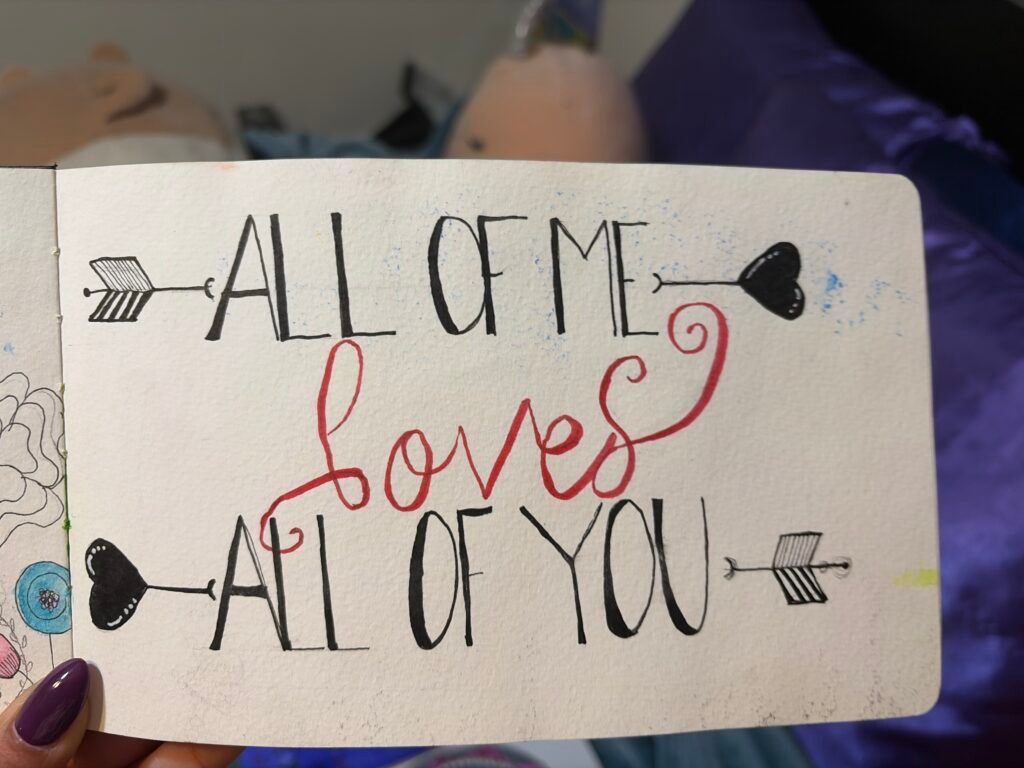 ALL OF ME
loves
ALL OF YOU